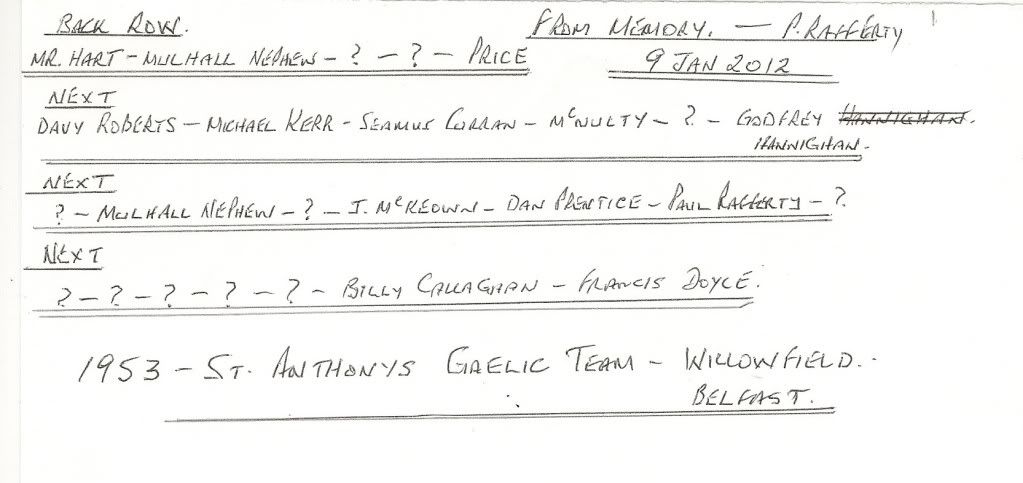 BACK ROW.
FROM MEMORY. — P. RAFFERTY
MR. HART – MULHALL NEPHEW – ? – ? – PRICE
9 JAN 2012
NEXT
DAVY ROBERTS – MICHAEL KERR – SEAMUS CURRAN – McNULTY – ? – GODFREY HANNIGHAN.
HANNIGHAN.
NEXT
? – MULHALL NEPHEW – ? – J. McKEOWN – DAN PRENTICE – PAUL RAFFERTY – ?
NEXT
? – ? – ? – ? – ? – BILLY CALLAGHAN – FRANCIS DOYLE.
1953 – ST. ANTHONYS GAELIC TEAM – WILLOWFIELD.
BELFAST.